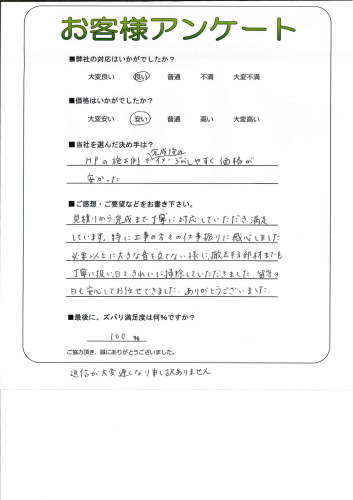 お客様アンケート
■弊社の対応はいかがでしたか?
大変良い 良い 普通 不満 大変不満
■価格はいかがでしたか?
大変安い 安い 普通 高い 大変高い
■当社を選んだ決め手は?
完成後の
HPの施工例でイメージがしやすく価格が
安かった
■ご感想・ご要望などをお書き下さい。
見積りから完成まで丁寧に対応していただき満足
しています。特に工事の方々の仕事振りに感心しました
必要以上に大きな音を立てない様に、撤去する部材までも
丁寧に扱い日々きれいに掃除していただきました。留守の
日も安心してお任せできました。ありがとうございました。
■最後に、ズバリ満足度は何%ですか?
100%
ご協力頂き、誠にありがとうございました。
返信が大変遅くなり申し訳ありません